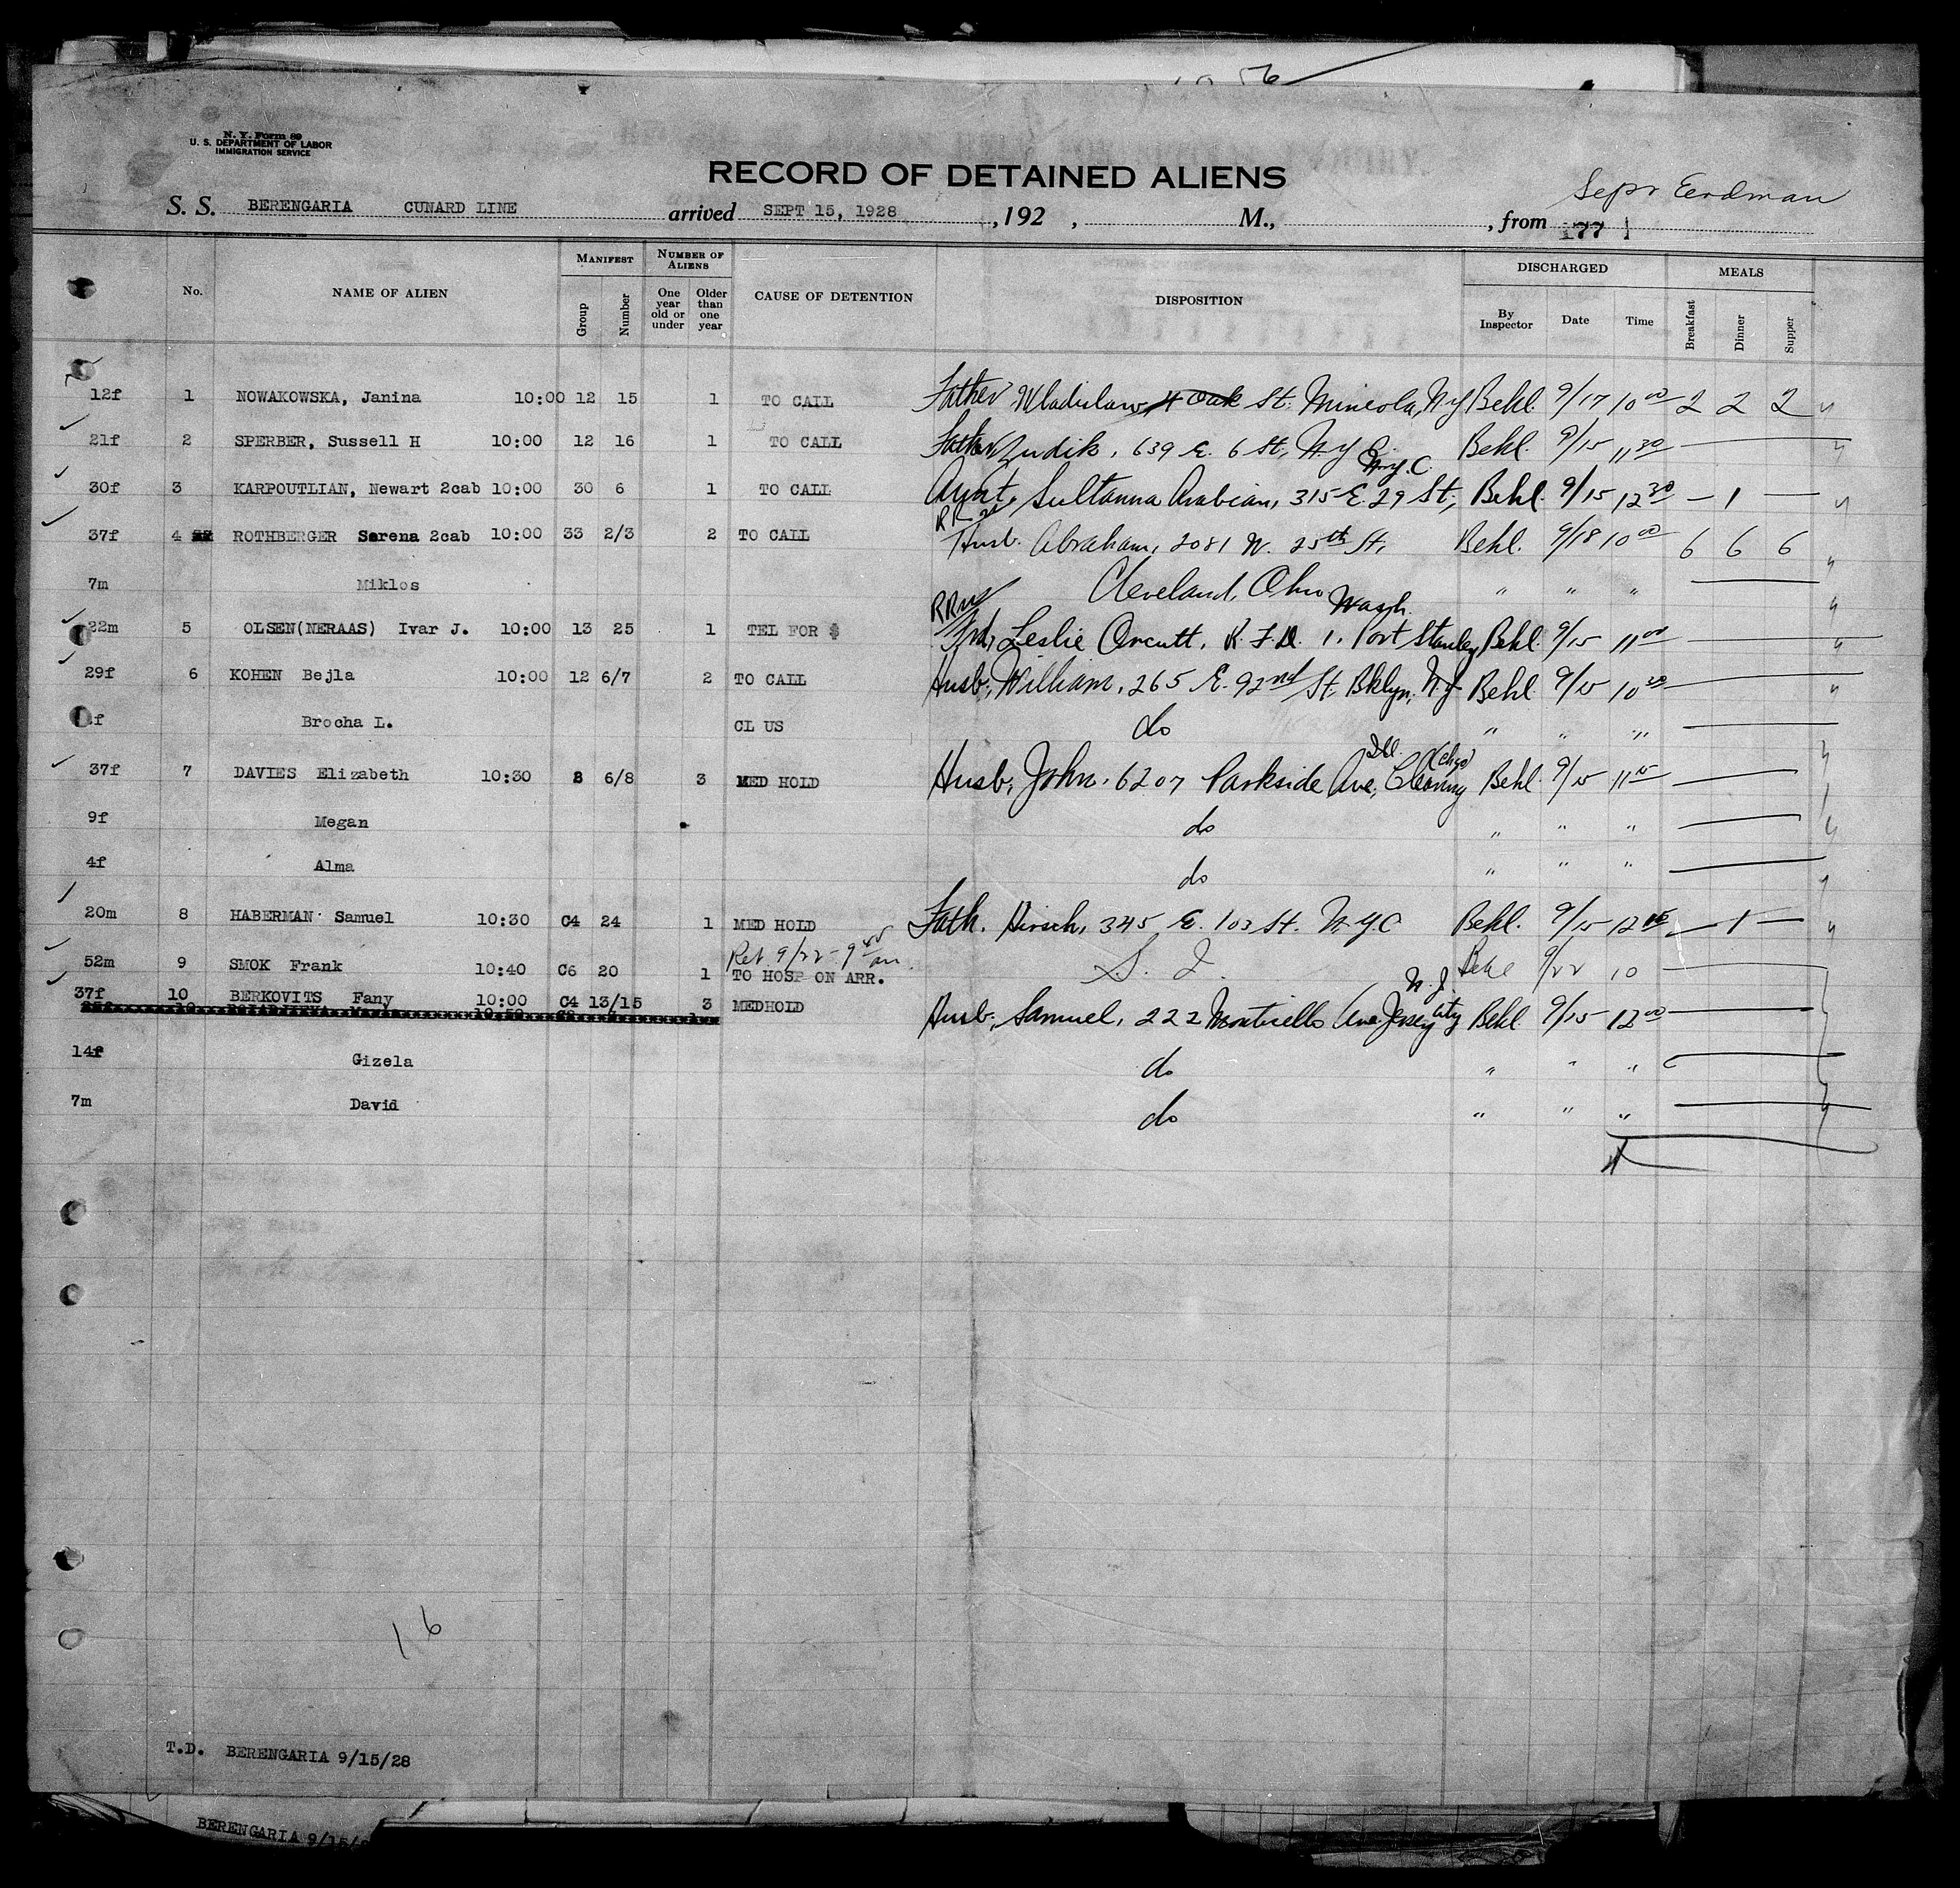 N. Y. Form 89
U. S. DEPARTMENT OF LABOR
IMMIGRATION SERVICE
RECORD OF DETAINED ALIENS
S. S. BERENGARIA CUNARD LINE arrived SEPT 15, 1928, 192 , M., , from 177
Manifest Number of Aliens DISCHARGED MEALS
No. NAME OF ALIEN Group Number One year old or under Older than one year CAUSE OF DETENTION DISPOSITION By Inspector Date Time Breakfast Dinner Supper
12f 1 NOWAKOWSKA, Janina 10:00 12 15 1 TO CALL Father Wladislaw 4 Oak St. Mineola, N Y Behl. 9/17 10 00 2 2 2
21f 2 SPERBER, Sussell H 10:00 12 16 1 TO CALL Father 639 E. 6 St., N. Y C. Behl. 9/15 11 30
N.Y.C.
30f 3 KARPOUTLIAN, Newart 2cab 10:00 30 6 1 TO CALL Aunt, Sultanna Arabian, 315 E. 29 St., Behl. 9/15 12 30 — 1 —
37f 4 ROTHBERGER Serena 2cab 10:00 33 2/3 2 TO CALL Husb. Abraham, 2081 W. 25th St, Behl. 9/18 10 00 6 6 6
7m Miklos Cleveland, Ohio " " "
Wash.
22m 5 OLSEN(NERAAS) Ivar J. 10:00 13 25 1 TEL FOR $ Frd, Leslie Orcutt, R. F. D. 1. Port Stanley, Behl. 9/15 11 00
29f 6 KOHEN Bejla 10:00 12 6/7 2 TO CALL Husb, William, 265 E. 92nd St. Bklyn, N. Y Behl 9/15 10 30
f Brocha L. CL US do " " "
Ill. (Chgo)
37f 7 DAVIES Elizabeth 10:30 8 6/8 3 MED HOLD Husb, John, 6207 Parkside Ave, Clearing Behl. 9/15 11 15
9f Megan do " " "
4f Alma do " " "
20m 8 HABERMAN Samuel 10:30 C4 24 1 MED HOLD Fath. Hirsch, 345 E. 103 St. N.Y.C Behl. 9/15 12 15 — 1 —
Ret 9/22 - 9 45 am.
52m 9 SMOK Frank 10:40 C6 20 1 TO HOSP ON ARR. S. I. Behl 9/22 10
N. J.
37f 10 BERKOVITS Fany 10:00 C4 13/15 3 MEDHOLD Husb, Samuel, 222 Monticello Ave. Jersey City Behl. 9/15 12 00
14f Gizela do " " "
7m David do " " "
16
T.D. BERENGARIA 9/15/28
BERENGARIA 9/15/